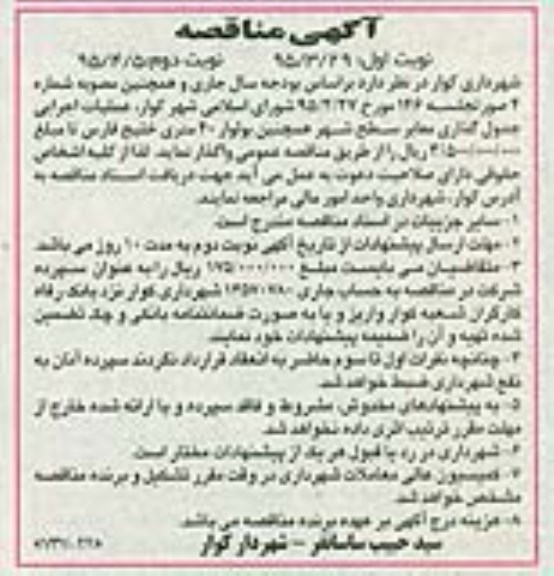 آگهی مناقصه
نوبت اول: ۹۵/۳/۲۹ نوبت دوم: ۹۵/۴/۵
شهرداری کوار در نظر دارد براساس بودجه سال جاری و همچنین مصوبه شماره
۲ صورتجلسه ۱۴۶ مورخ ۹۵/۲/۲۷ شورای اسلامی شهر کوار، عملیات اجرایی
جدول گذاری معابر سطح شهر همچنین بولوار ۴۰ متری خلیج فارس تا مبلغ
۳/۵۰۰/۰۰۰/۰۰۰ ریال را از طریق مناقصه عمومی واگذار نماید. لذا از کلیه اشخاص
حقوقی دارای صلاحیت دعوت به عمل می آید جهت دریافت اسناد مناقصه به
آدرس کوار، شهرداری واحد امور مالی مراجعه نمایند.
۱- سایر جزییات در اسناد مناقصه مندرج است.
۲- مهلت ارسال پیشنهادات از تاریخ آگهی نوبت دوم به مدت ۱۰ روز می باشد.
۳- متقاضیان می بایست مبلغ ۱۷۵/۰۰۰/۰۰۰ ریال را به عنوان سپرده
شرکت در مناقصه به حساب جاری شهرداری کوار نزد بانک رفاه
کارگران شعبه کوار واریز و یا به صورت ضمانتنامه بانکی و چک تضمین
شده تهیه و آن را ضمیمه پیشنهادات خود نمایند.
۴- چنانچه نفرات اول تا سوم حاضر به انعقاد قرارداد نگردند سپرده آنان به
نفع شهرداری ضبط خواهد شد.
۵- به پیشنهادهای مخدوش، مشروط و فاقد سپرده و یا ارائه شده خارج از
مهلت مقرر ترتیب اثری داده نخواهد شد.
۶- شهرداری در رد یا قبول هر یک از پیشنهادات مختار است.
۷- کمیسیون عالی معاملات شهرداری در وقت مقرر تشکیل و برنده مناقصه
مشخص خواهد شد.
۸- هزینه درج آگهی بر عهده برنده مناقصه می باشد.
سید حبیب ساسانفر - شهردار کوار